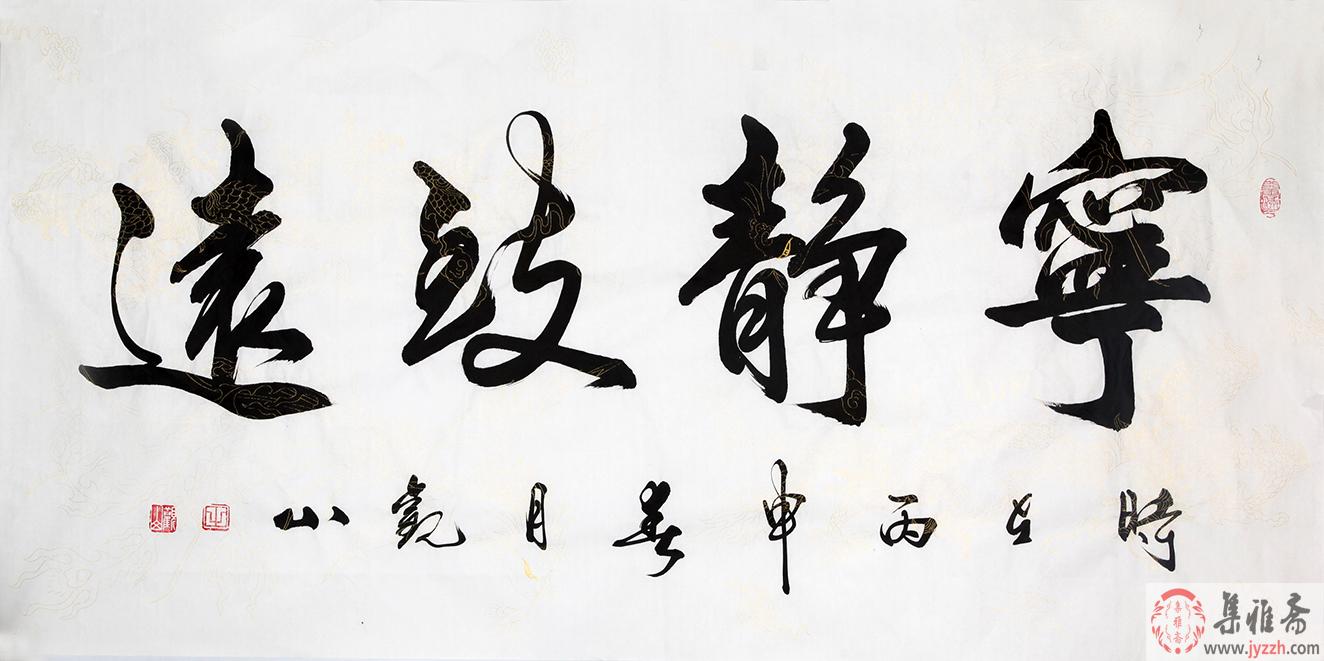 寧静致遠
時在丙申春月觀山
集雅斋
www.jyzzh.com